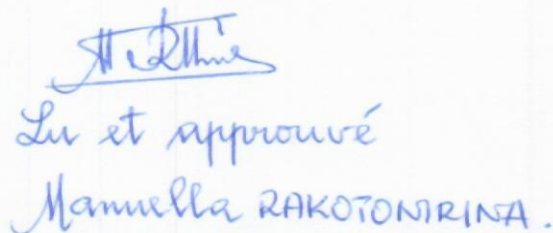 Lu et approuvé
Manuella RAKOTONIRINA.